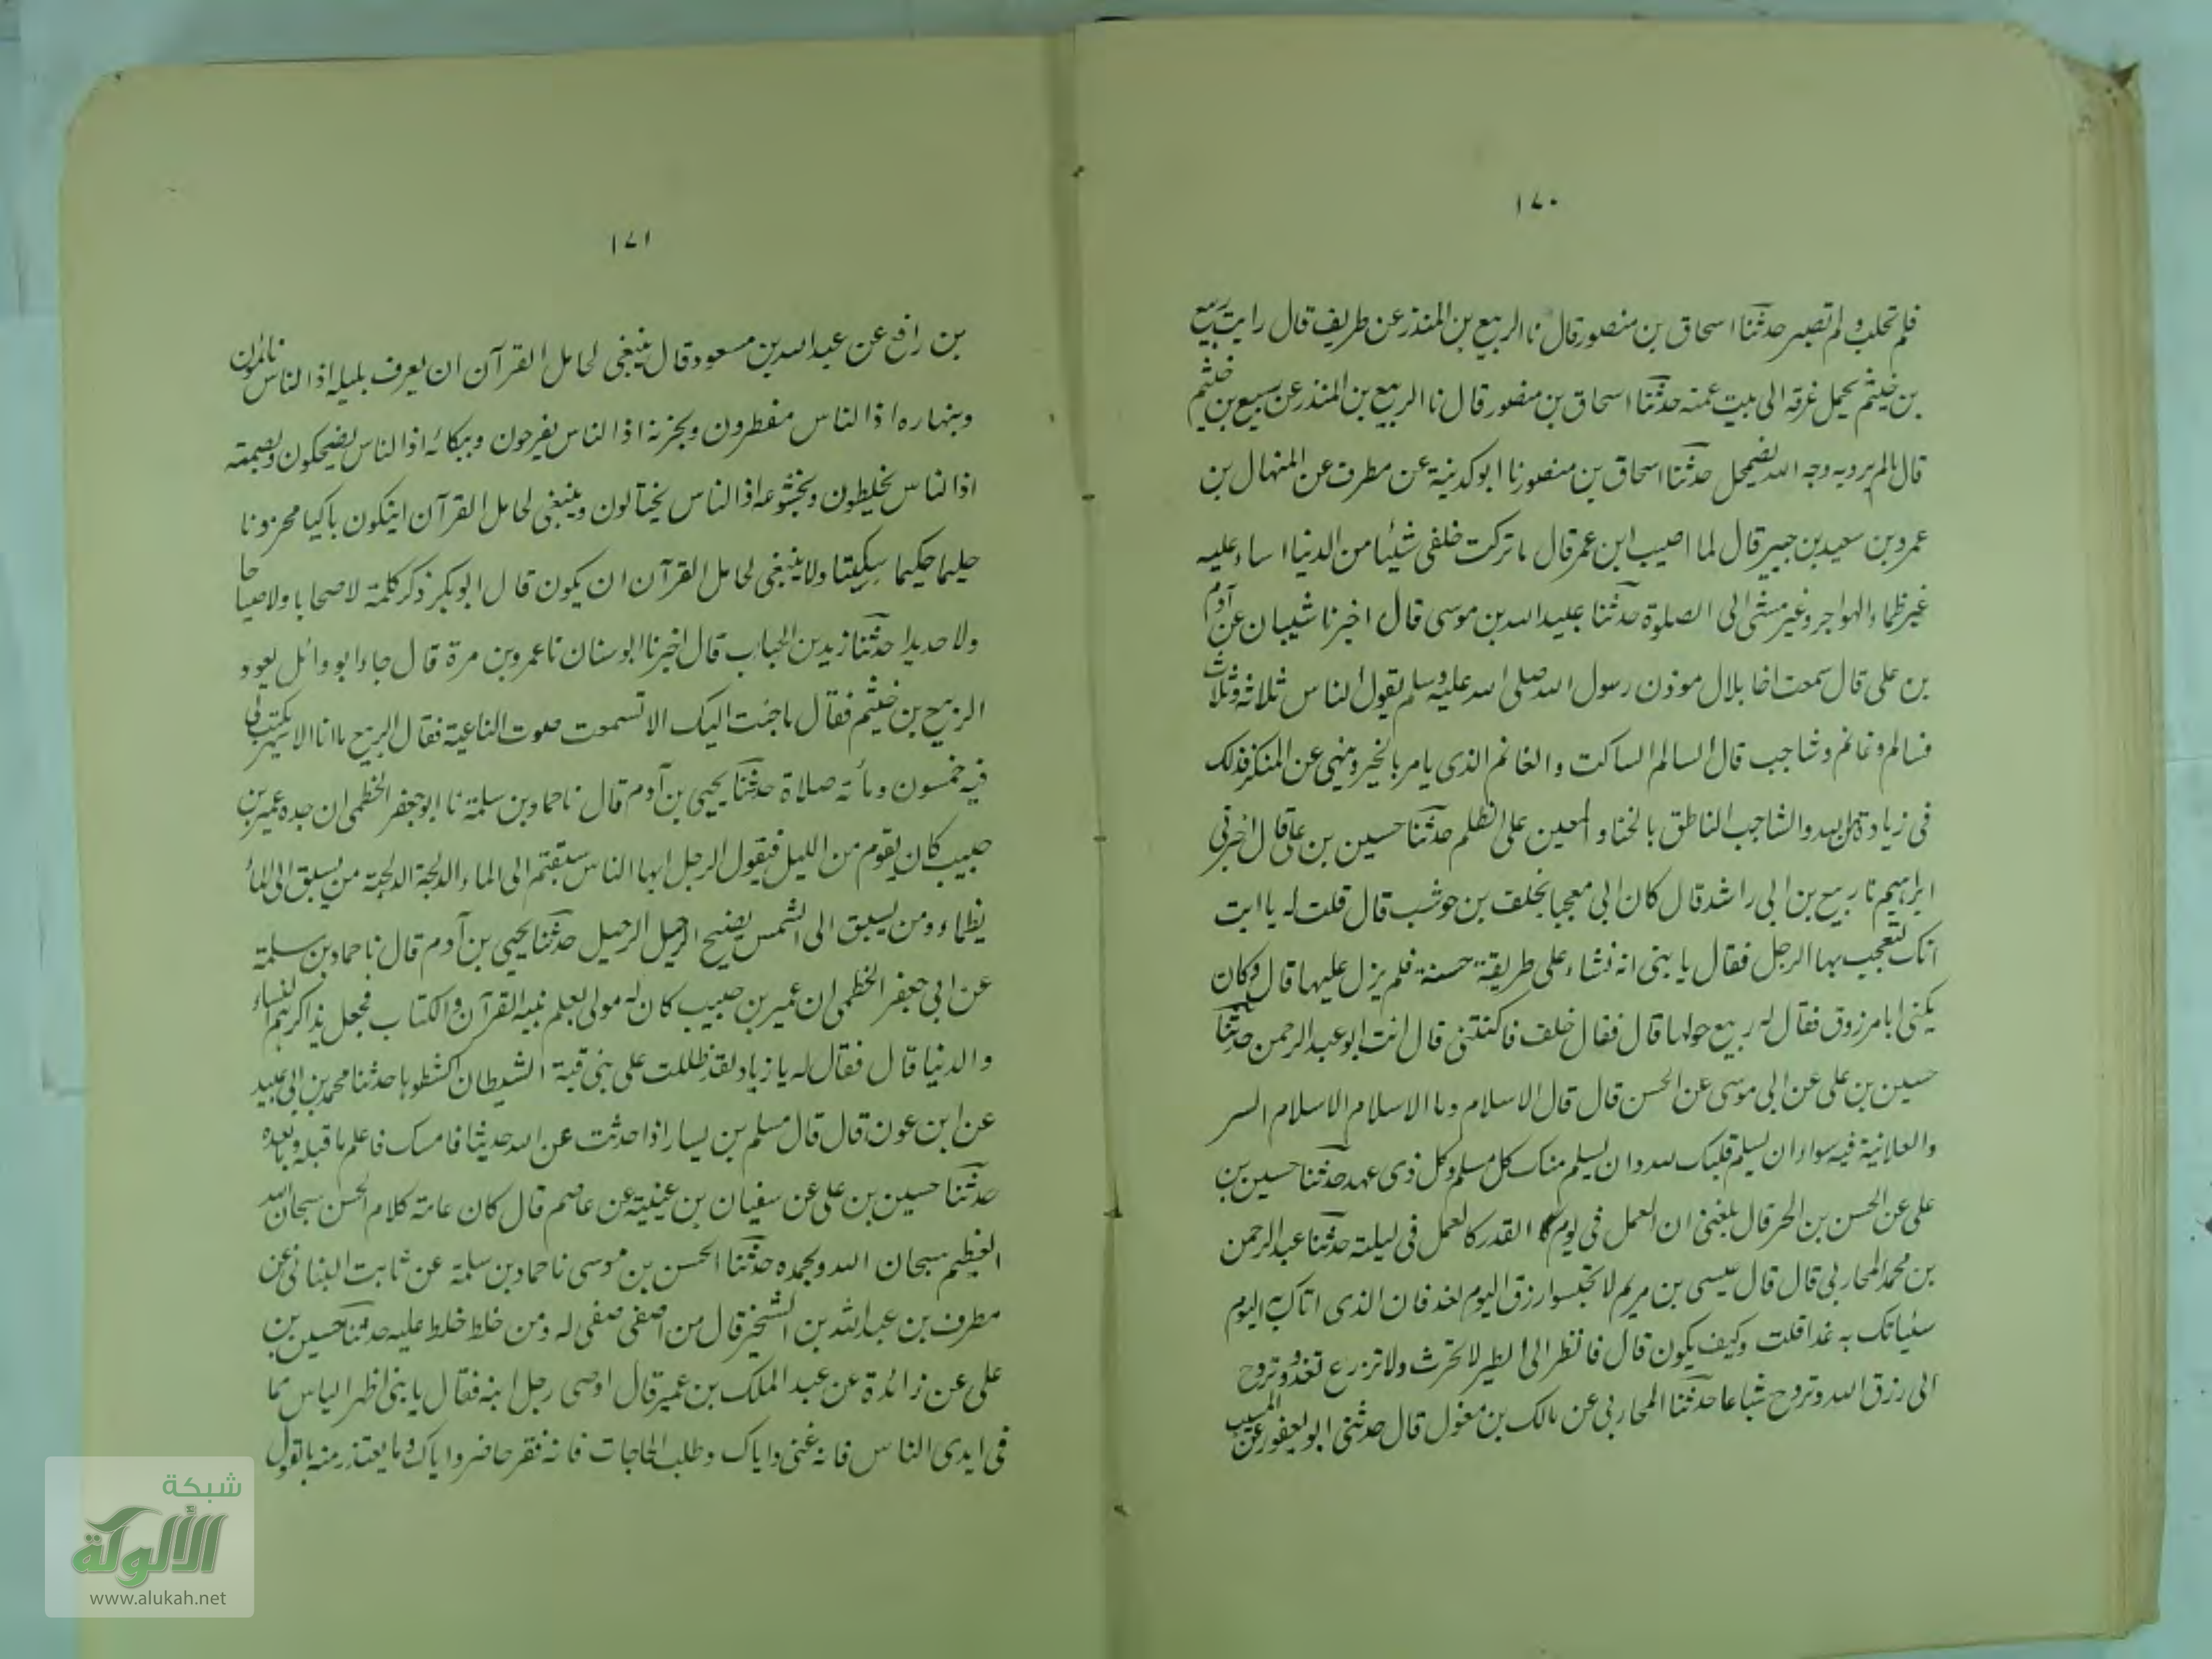 ١٧٠
فلم تحلب ولم تصبر حدثنا اسحاق بن منصور قال نا الربيع بن المنذر عن طريف قال رايت ربيع
بن خيثم يحمل عرقه الى بيت عمته حدثنا اسحاق بن منصور قال نا الربيع بن المنذر عن ربيع بن خثيم
قال مالم يرو به وجه الله يضمحل حدثنا اسحاق بن منصور نا ابو كدينة عن مطرف عن المنهال بن
عمرو بن سعيد بن جبير قال لما اصيب ابن عمر قال ما تركت خلفى شيئا من الدنيا اساء عليه
غير ظماء الهواجر وغير مشى الى الصلوة حدثنا عبيد الله بن موسى قال اخبرنا شيبان عن آدم
بن على قال سمعت اخا بلال موذن رسول الله صلى الله عليه وسلم يقول الناس ثلاثة وثلاث
فسالم وغانم وشاجب قال السالم الساكت والغانم الذى يامر بالخير وينهى عن المنكر فذلك
فى زيادة من الله والشاجب الناطق بالخنا والمعين على الظلم حدثنا حسين بن على قال اخبرنى
ابراهيم نا ربيع بن ابى راشد قال كان ابى معجبا بخلف بن حوشب قال قلت له يا ابت
انك لتعجب بهذا الرجل فقال يا بنى انه نشاء على طريقة حسنة فلم يزل عليها قال وكان
يكنى ابا مرزوق فقال له ربيع حولها قال فقال خلف فاكنتنى قال انت ابو عبد الرحمن حدثنا
حسين بن على عن ابى موسى عن الحسن قال قال الاسلام وما الاسلام الاسلام السر
والعلانية فيه سواء ان يسلم قلبك لله وان يسلم منك كل مسلم وكل ذى عهد حدثنا حسين بن
على عن الحسن بن الحر قال بلغنى ان العمل فى يوم القدر كالعمل فى ليلته حدثنا عبد الرحمن
بن محمد المحاربى قال قال عيسى بن مريم لا تحبسوا رزق اليوم لغد فان الذى اتاك به اليوم
سئياتك به غدا قلت وكيف يكون قال فانظر الى الطير لا تحرث ولا تزرع تغدو وتروح
الى رزق الله وتروح شباعا حدثنا المحاربى عن مالك بن مغول قال حدثنى ابو يعفور عن المسيب
١٧١
بن رافع عن عبد الله بن مسعود قال ينبغى لحامل القرآن ان يعرف بليله اذا الناس نائمون
وبنهاره اذا الناس مفطرون وبحزنه اذا الناس يفرحون وببكائه اذا الناس يضحكون وبصمته
اذا الناس يخلطون وبخشوعه اذا الناس يختالون وينبغى لحامل القرآن ان يكون باكيا محزونا
حليما حكيما سكيتا ولا ينبغى لحامل القرآن ان يكون قال ابو بكر ذكر كلمة لا صخابا ولا صياحا
ولا حديدا حدثنا زيد بن الحباب قال اخبرنا ابو سنان نا عمرو بن مرة قال جاء ابو وائل يعود
الربيع بن خثيم فقال ما جئت اليك الا تسمعت صوت الناعية فقال الربيع ما انا الا شهر يكتب لى
فيه خمسون ومأئة صلاة حدثنا يحيى بن آدم قال نا حماد بن سلمة نا ابو جعفر الخطمى ان جده عمير بن
حبيب كان يقوم من الليل فيقول الرجل ايها الناس سبقتم الى الماء الدلجة الدلجة من يسبق الى الماء
يظماء ومن يسبق الى الشمس يضيح الرحيل الرحيل حدثنا يحيى بن آدم قال نا حماد بن سلمة
عن ابى جعفر الخطمى ان عمير بن حبيب كان له مولى يعلم بنيه القرآن والكتاب فجعل يذاكرهم النساء
والدنيا قال فقال له يا زياد لقد ظللت على بنى قبة الشيطان اكشطوها حدثنا محمد بن ابى عبيد
عن ابن عون قال قال مسلم بن يسار اذا حدثت عن الله حديثا فامسك فاعلم ما قبله وما بعده
حدثنا حسين بن على عن سفيان بن عينية عن عاصم قال كان عامة كلام الحسن سبحان الله
العظيم سبحان الله وبحمده حدثنا الحسن بن موسى نا حماد بن سلمة عن ثابت البنانى عن
مطرف بن عبد الله بن الشخير قال من اصفى صفى له ومن خلط خلط عليه حدثنا حسين بن
على عن زائدة عن عبد الملك بن عمير قال اوصى رجل ابنه فقال يا بنى اظهر الياس مما
فى ايدى الناس فانه غنى واياك وطلب الحاجات فانه فقر حاضر واياك وما يعتذر منه بالقول
شبكة
الألوكة
www.alukah.net